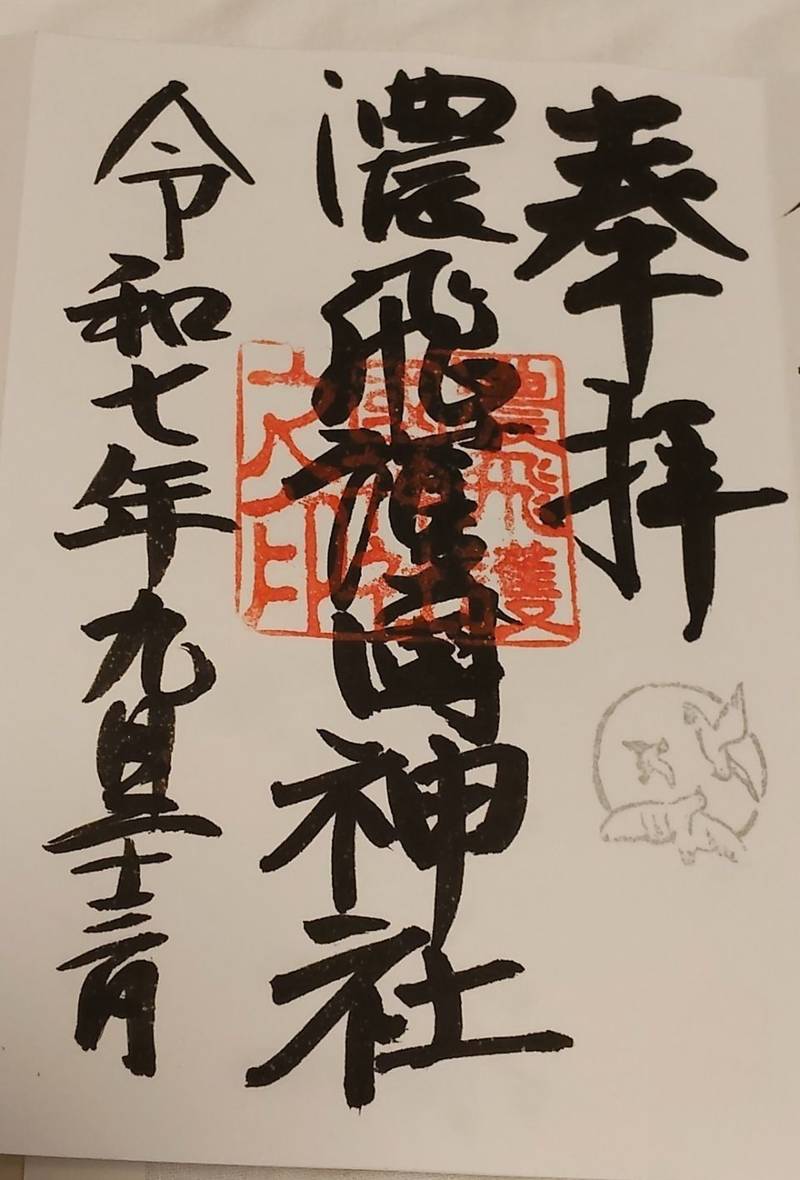 奉拝
濃飛護國神社
令和七年九月二十三日
濃飛護
國神社
之印